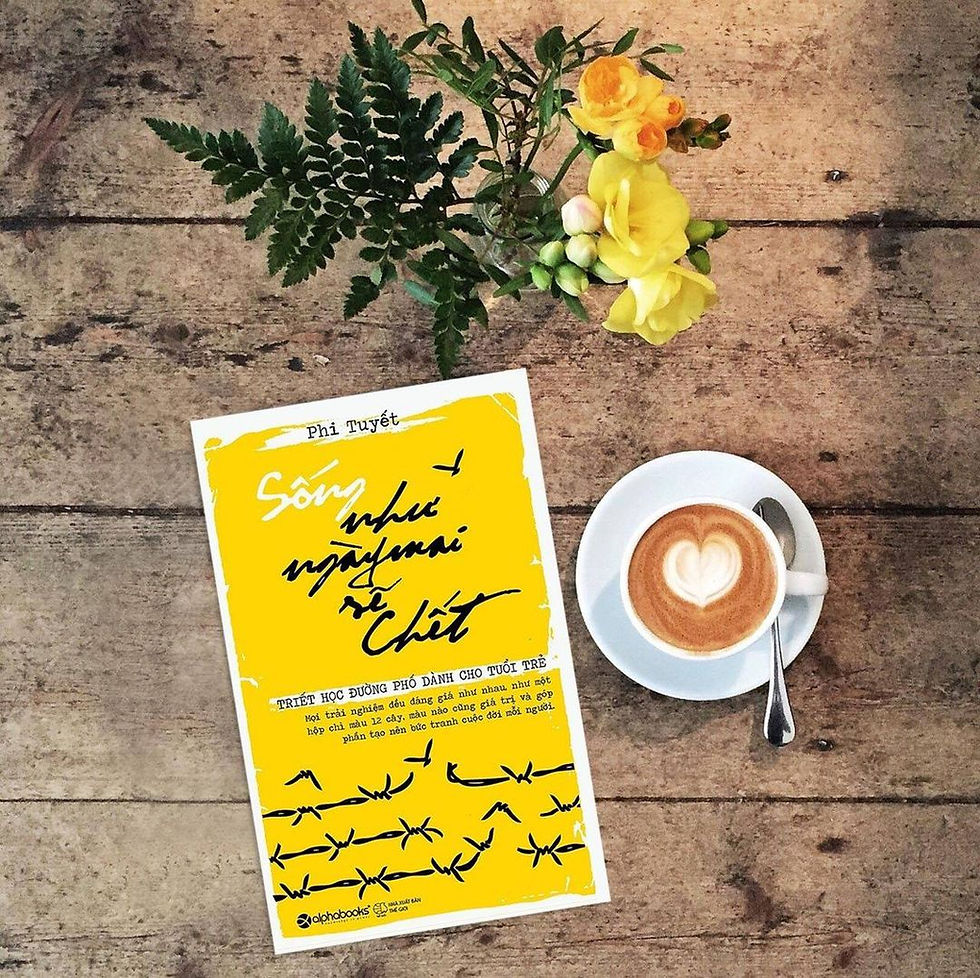 Phi Tuyết
Sống
như
ngày mai
sẽ
Chết
TRIẾT HỌC ĐƯỜNG PHỐ DÀNH CHO TUỔI TRẺ
Mọi trải nghiệm đều đáng giá như nhau, như một
hộp chì màu 12 cây, màu nào cũng giá trị và góp
phần tạo nên bức tranh cuộc đời mỗi người.
alphabooks
NHÀ XUẤT BẢN
THẾ GIỚI